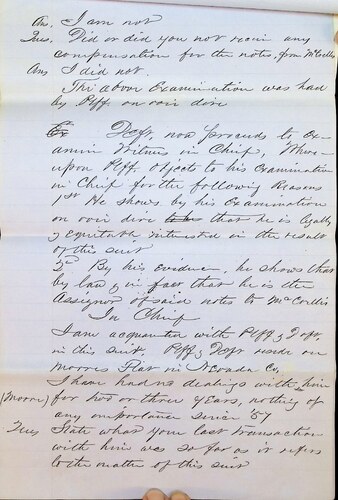 Ans. I am not
Ques. Did or did you not receive any
compensation for the notes, from McCullis
Ans I did not.
The above Examination was had
by Plff. on voir dire
Deft. now proceeds to ex-
amin Witness in Chief, Where-
upon Plff. objects to his examination
in Chief for the following Reasons
1st He shows by his Examination
on voir dire that he is legally
& equitably interested in the result
of this suit
2nd By his evidence, he shows that
by law & in fact that he is the
Assignor of said notes to McCullis
In Chief
I am acquainted with Plff & Deft.
in this suit. Plff & Deft reside on
Morris Flat in Nevada Co,
I have had no dealings with him
(Morris) for two or three years, nothing of
any importance since '57
Ques State what your last transaction
with him was so far as it refers
to the matter of this suit